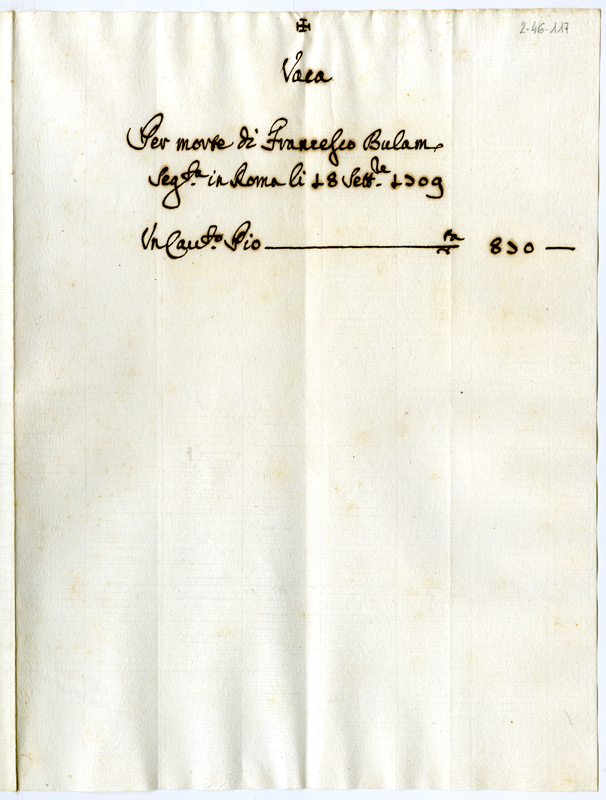 ✠
2-46-117
Vaca
Per morte di Francesco Bulam
Seg.ta in Roma li 18 Sett.e 1709
Un Cau.to Pio ——— 830 —